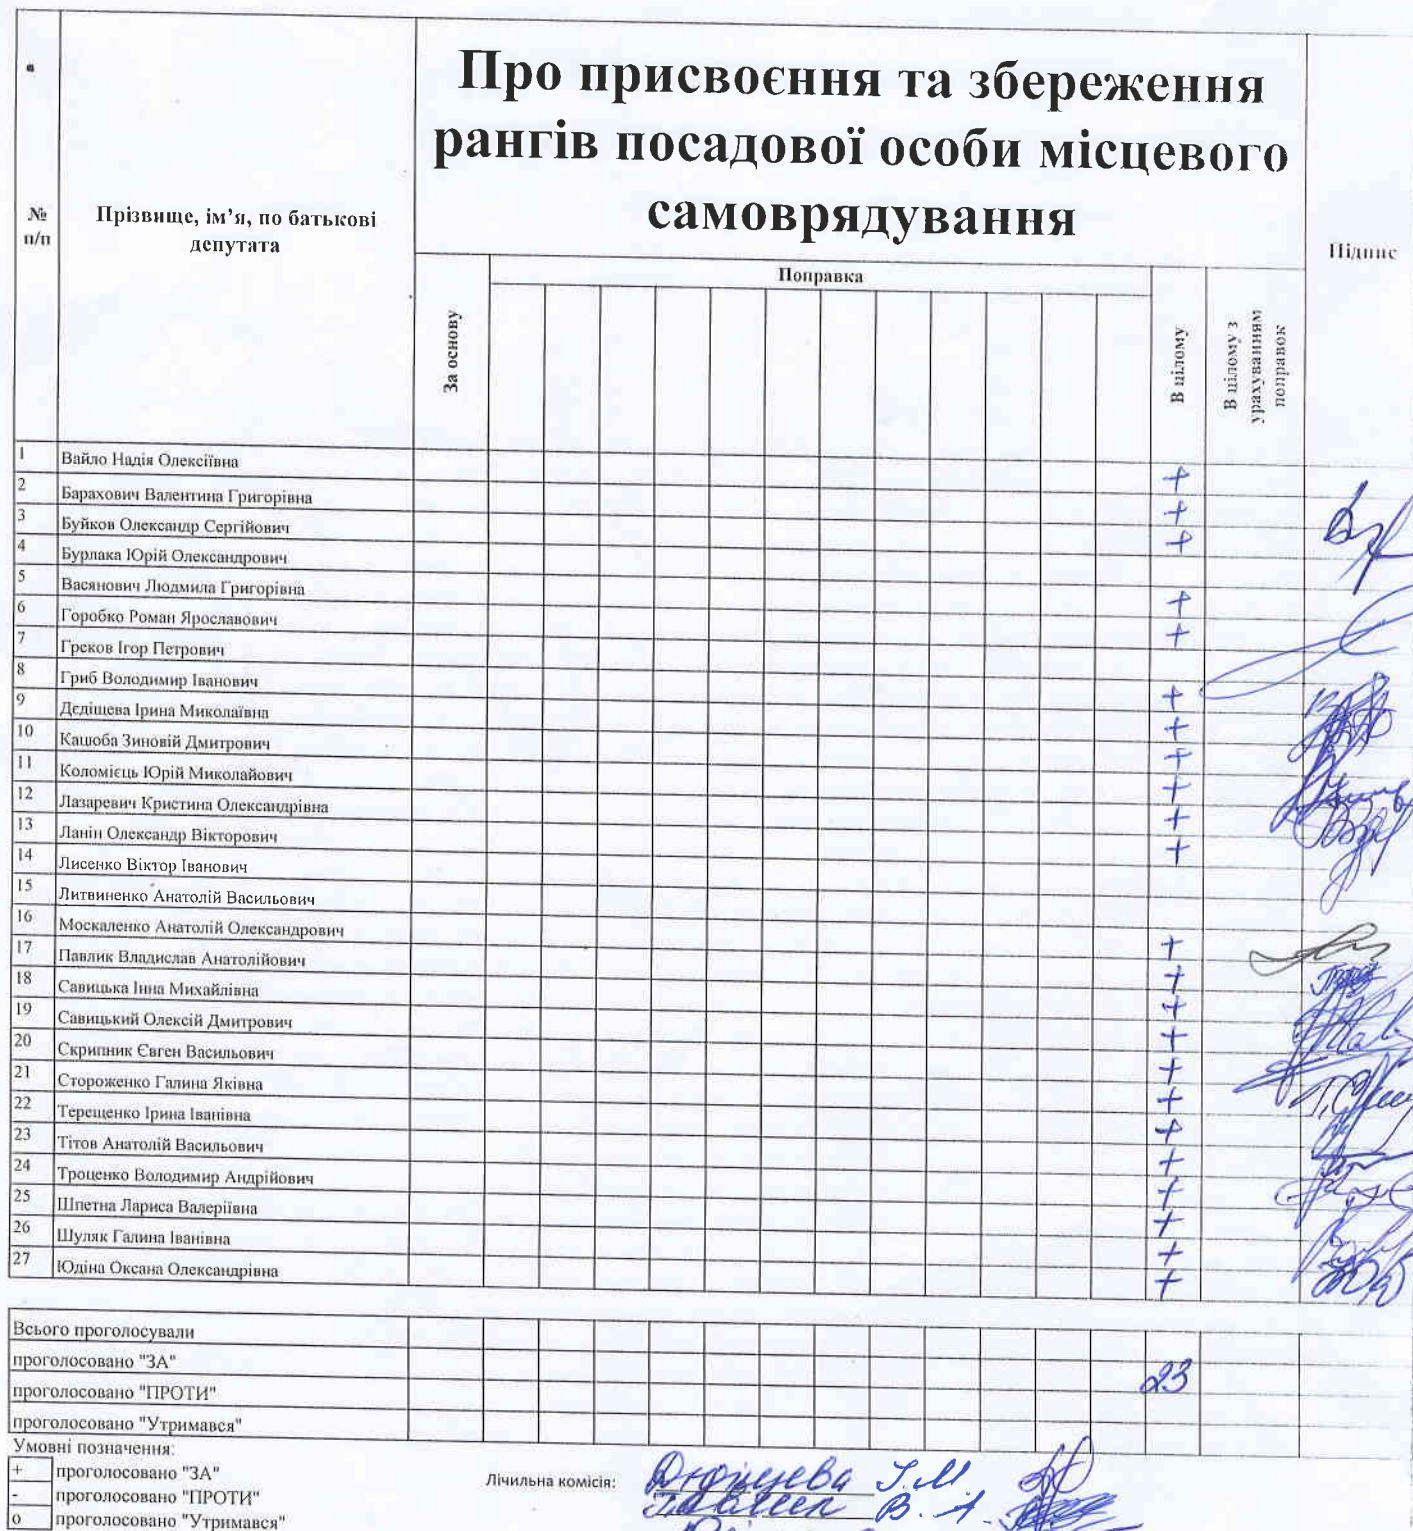 Про присвоєння та збереження
рангів посадової особи місцевого
самоврядування
№
п/п
Прізвище, ім’я, по батькові
депутата
Підпис
За основу
Поправка
В цілому
В цілому з
урахуванням
поправок
1 Вайло Надія Олексіївна +
2 Барахович Валентина Григорівна +
3 Буйков Олександр Сергійович +
4 Бурлака Юрій Олександрович
5 Васянович Людмила Григорівна +
6 Горобко Роман Ярославович +
7 Греков Ігор Петрович
8 Гриб Володимир Іванович +
9 Дєдіщева Ірина Миколаївна +
10 Кацюба Зиновій Дмитрович +
11 Коломієць Юрій Миколайович +
12 Лазаревич Кристина Олександрівна +
13 Ланін Олександр Вікторович +
14 Лисенко Віктор Іванович
15 Литвиненко Анатолій Васильович
16 Москаленко Анатолій Олександрович +
17 Павлик Владислав Анатолійович +
18 Савицька Інна Михайлівна +
19 Савицький Олексій Дмитрович +
20 Скрипник Євген Васильович +
21 Стороженко Галина Яківна +
22 Терещенко Ірина Іванівна +
23 Тітов Анатолій Васильович +
24 Троценко Володимир Андрійович +
25 Шпетна Лариса Валеріївна +
26 Шуляк Галина Іванівна +
27 Юдіна Оксана Олександрівна +
Всього проголосували
проголосовано "ЗА" 23
проголосовано "ПРОТИ"
проголосовано "Утримався"
Умовні позначення:
+ проголосовано "ЗА"
- проголосовано "ПРОТИ"
о проголосовано "Утримався"
Лічильна комісія:
І.М.
В. А.